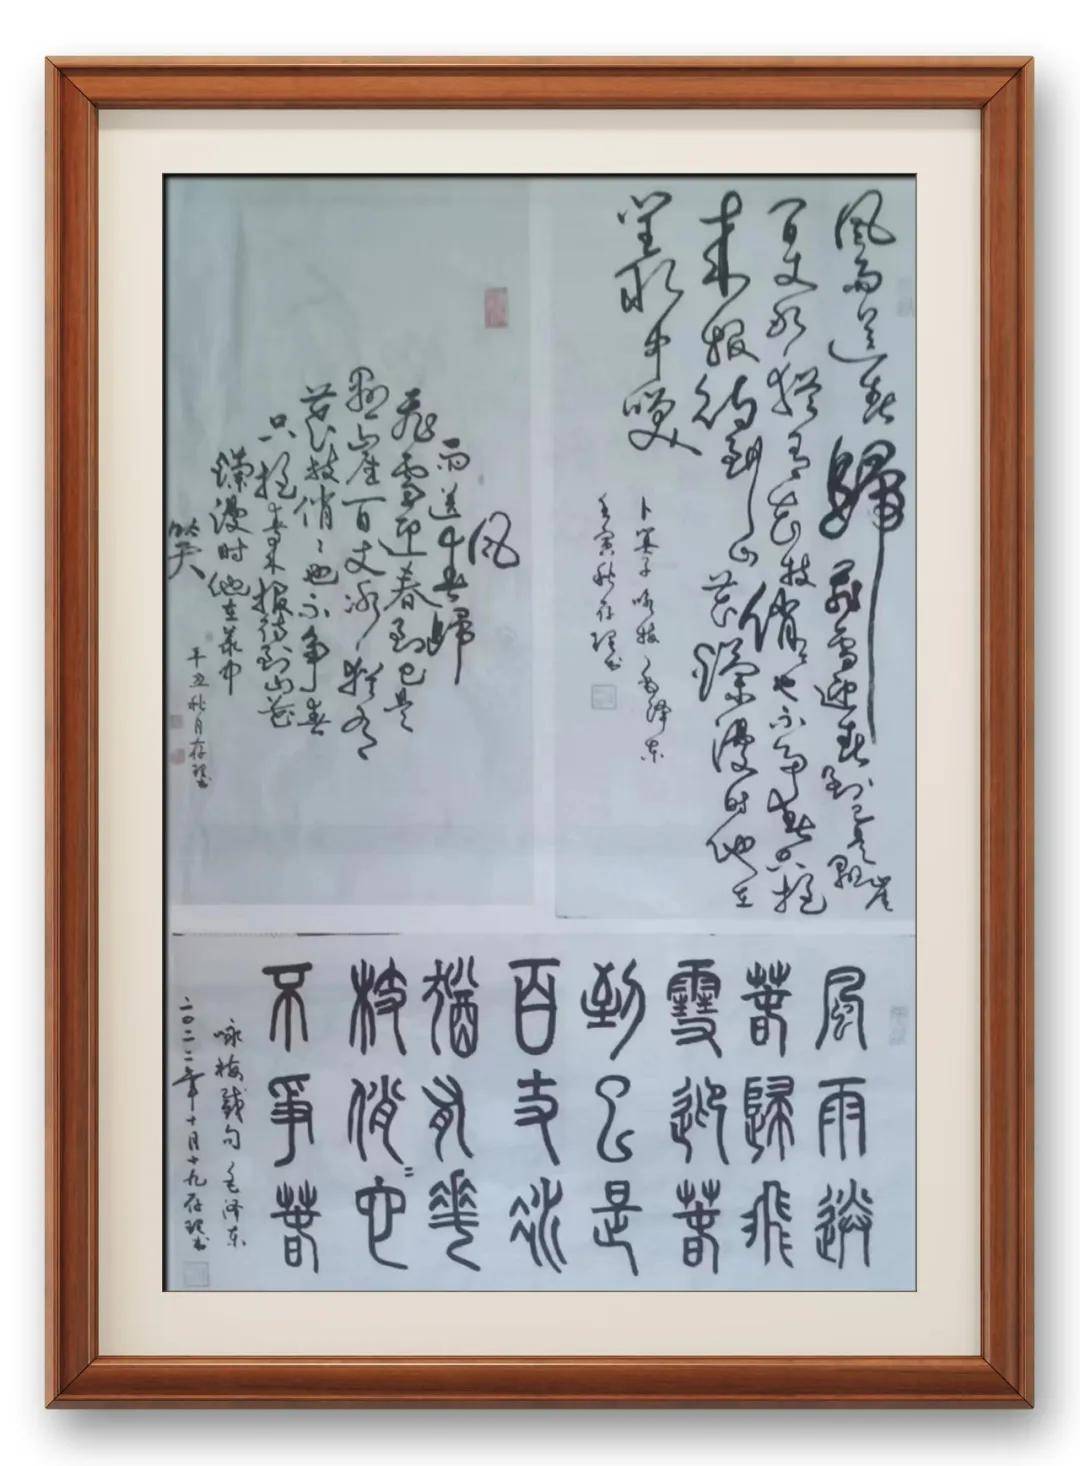 風雨送春歸飛雪迎春到已是懸崖
百丈冰猶有花枝俏〻也不争春只把
来报待到山花爛漫时他在
叢中笑
卜算子咏梅毛泽东
壬寅秋存理书
风
雨送春歸
飛雪迎春到已是
懸崖百丈冰猶有
花枝俏〻也不争春
只把春来报待到山花
爛漫时他在丛中
笑
辛丑秋月存理书
風雨送
春歸飛
雪迎春
到已是
百丈冰
猶有花
枝俏〻也
不爭春
咏梅截句毛泽东
二〇二二年十月十九存理书